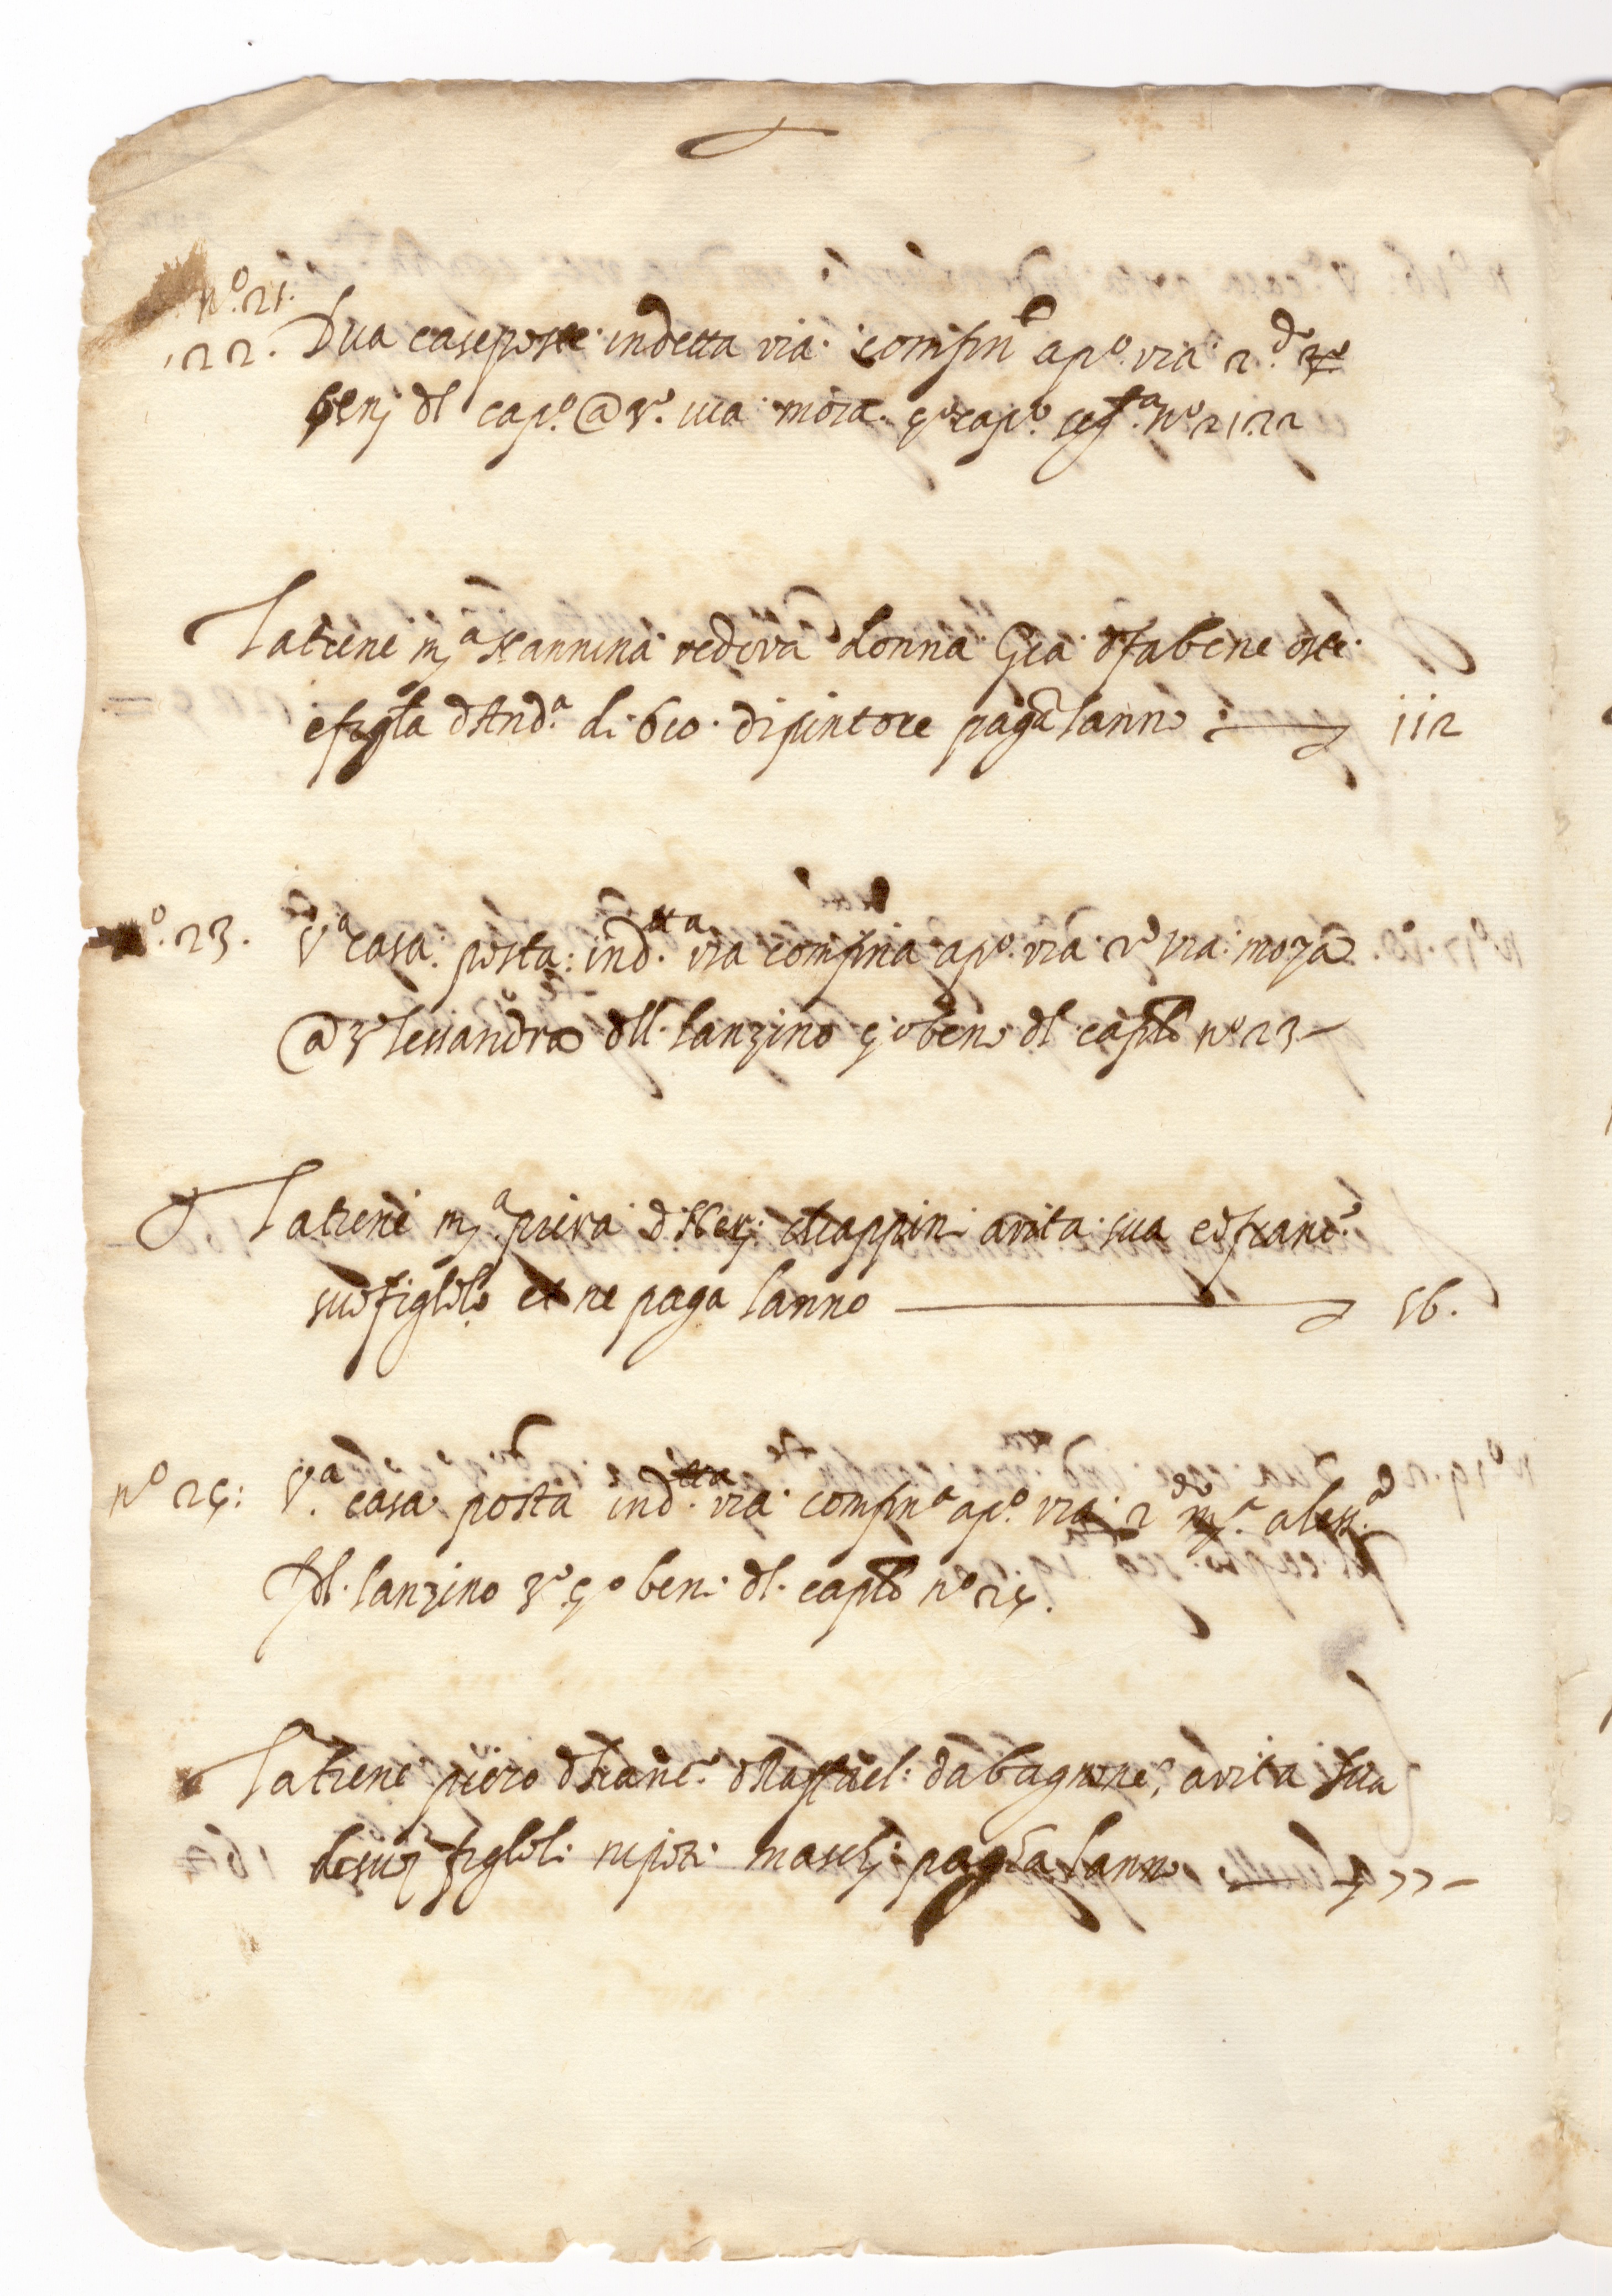 nº. 21.
22. Dua case poste indetta via. comfin apº. via 2.º
benj dl capº. @ 3º. via moza. 4º capº. segª. nº 21.22
La tiene mª Nannina vedova donna Gia d fabene oste.
e figla d Andª. di bio. dipintore paga lanno 112
nº. 23. Vª casa. posta: ind.tta via comfina apº. via 2º via. moza
@ 3º lessandro dll. lanzino 4º beni dl captlo nº 23
La tiene mª. piera d Nerj. chiappini avita sua e d franc.º
suo figlolo et ne paga lanno 56.
nº 24: V.ª casa posta ind.tta via. comfinª apº. via. 2º mª. aless.ª
dl. lanzino 3º 4º beni. dl. captlo nº 24.
La tiene piero d franc.º d Raffael: da bagnone, avita sua
de suoj figloli. nipoti. maschj. paga lanno 77